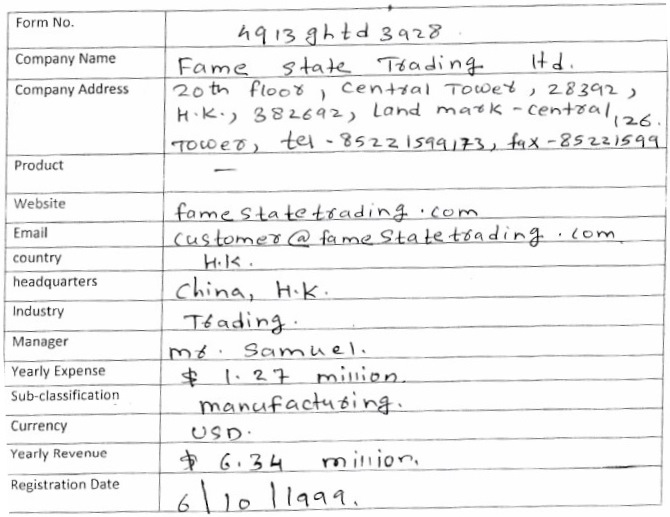 Form No. 4913ghtd3928
Company Name Fame state Trading ltd.
Company Address 20th floor, central Tower, 28392,
H.K., 382692, Land mark-central
126.
Tower, tel-85221599173, fax-85221599
Product —
Website famestatetrading.com
Email customer@famestatetrading.com
country H.K.
headquarters China, H.K.
Industry Trading.
Manager mr. Samuel.
Yearly Expense $ 1.27 million.
Sub-classification manufacturing.
Currency USD.
Yearly Revenue $ 6.34 million.
Registration Date 6/10/1999.